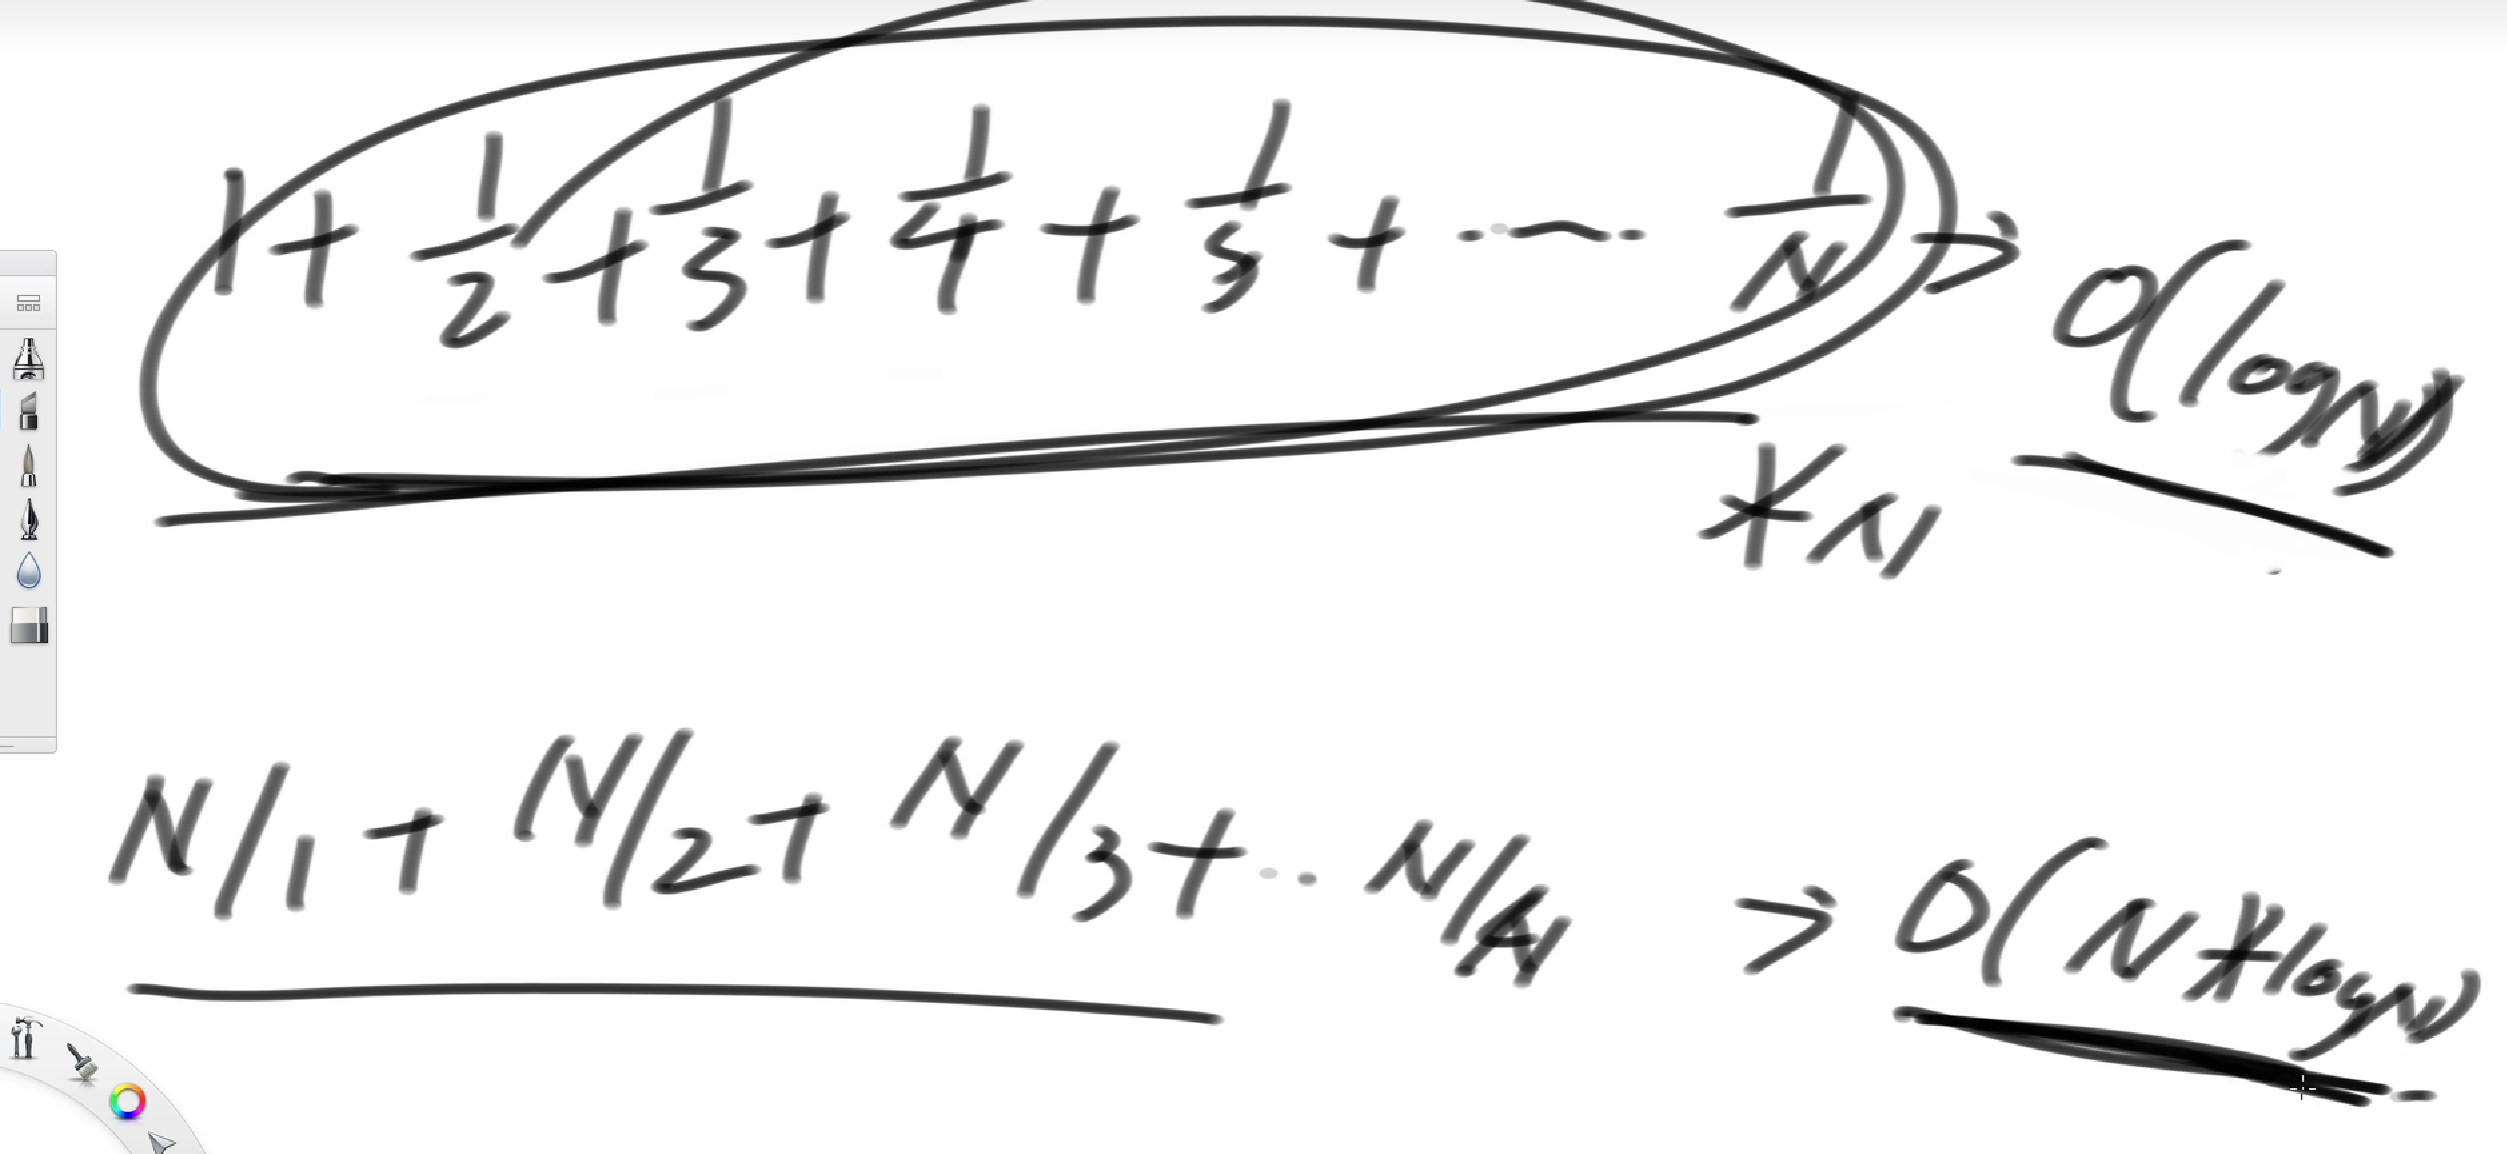 1 + 1/2 + 1/3 + 1/4 + 1/5 + ..~. 1/N => O(logN)
* N
N/1 + N/2 + N/3 + .. N/N => O(N * logN)